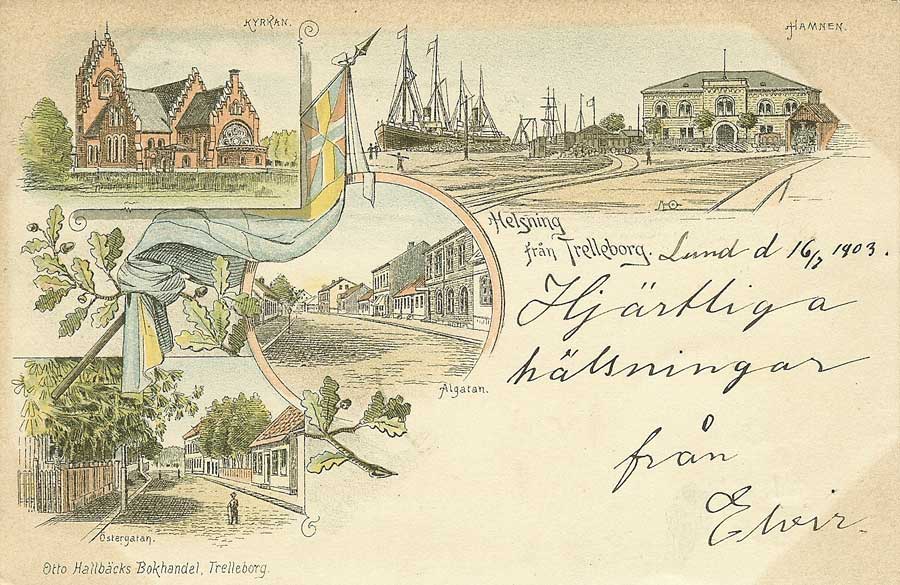 KYRKAN.
HAMNEN.
Helsning
från Trelleborg.
Lund d 16/7 1903.
Hjärtliga
hälsningar
från
Elvir.
Algatan.
Östergatan.
Otto Hallbäcks Bokhandel, Trelleborg.